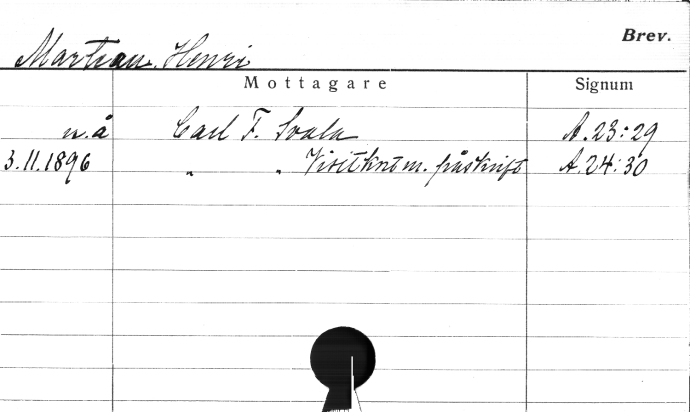 Brev.
Marteau, Henri
Mottagare Signum
n.å Carl F. Svala A.23:29
3.11.1896 „ „ Visitkrt m. påskrift A.24:30